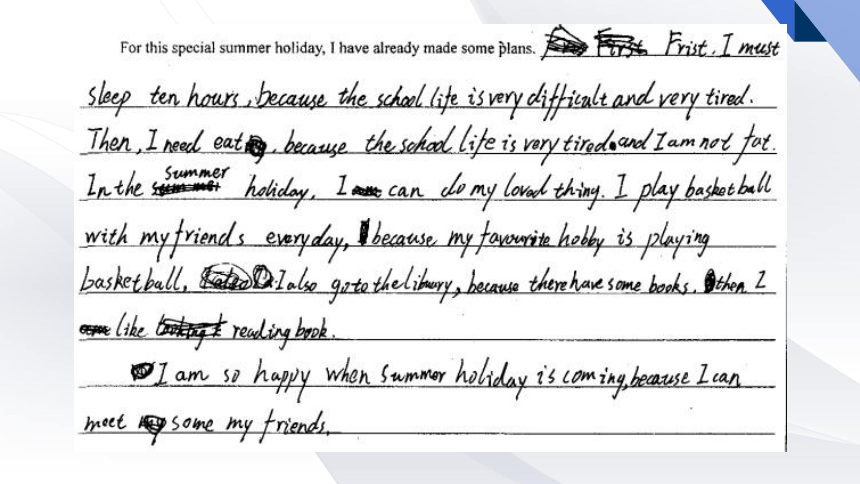 For this special summer holiday, I have already made some plans. Frist. I must
sleep ten hours, because the school life is very difficult and very tired.
Then, I need eat, because the school life is very tired and I am not fat.
In the summer holiday, I can do my loved thing. I play basketball
with my friends everyday, because my favourite hobby is playing
basketball, I also go to the libuary, because there have some books. then I
like reading book.
I am so happy when summer holiday is coming, because I can
meet some my friends.